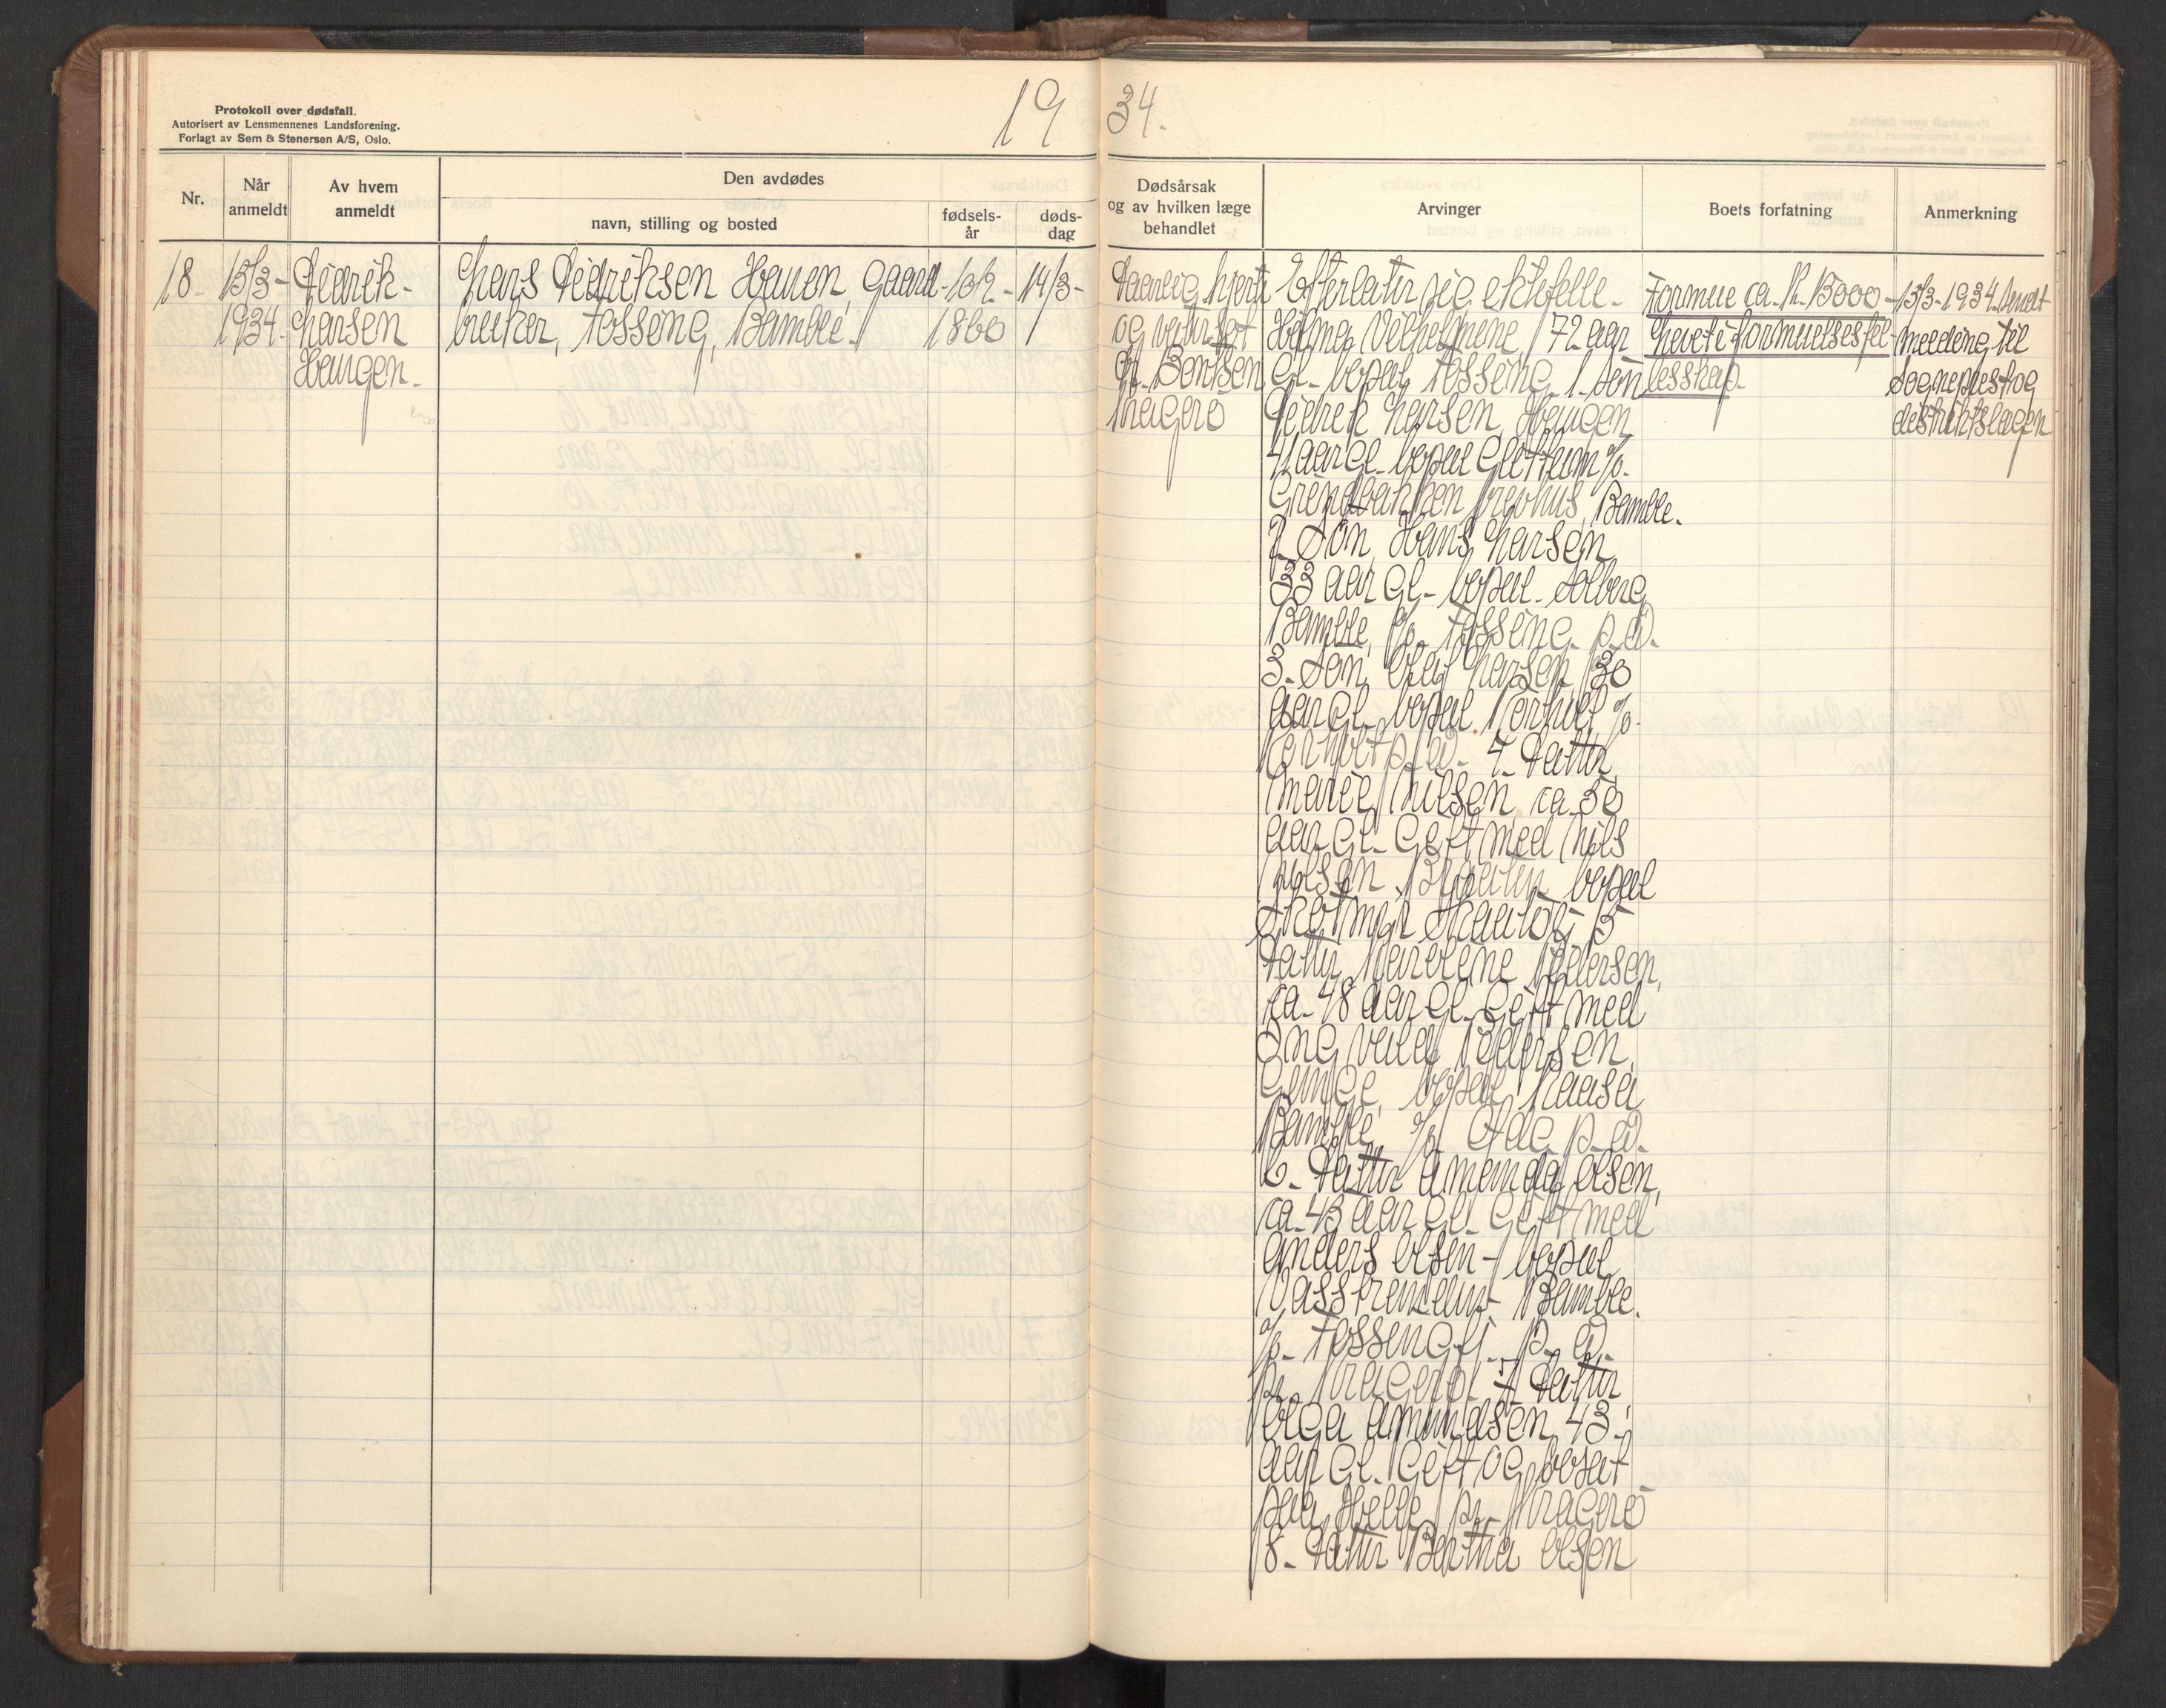 Protokoll over dødsfall.
Autorisert av Lensmennenes Landsforening.
Forlagt av Sem & Stenersen A/S, Oslo.
19 34.
Nr.
Når anmeldt
Av hvem anmeldt
Den avdødes
navn, stilling og bosted
fødsels- år
døds- dag
Dødsårsak og av hvilken læge behandlet
Arvinger
Boets forfatning
Anmerkning
18.
15/3-
1934.
Didrik-
Larsen
Haugen.
Lars Didriksen Gaard-
bruker, Fossing, Bamble.
10/2-
1860
14/3-
Daarlig hjerte
og vatersot
Dr. Bentsen
Kragerø
Efterlater sig ektefelle-
Vilhelmine, 72 aar
Gl- bopæl Fossing. 1. Søn
Didrik Larsen Haugen
41 aar Gl- bopæl
Bamble.
2. Søn, Hans Larsen,
33 aar Gl- bopæl- Solberg
Bamble, p/o. Fossing. p. å.
3. Søn, Olaf Larsen, 30
aar Gl- bopæl. p/o.
p. å. 4. Datter,
Marie Nilsen, ca. 50
aar Gl- Gift med Nils
Nilsen, bopæl
5
Datter, Pedersen,
ca- 48 aar Gl- Gift med
Pedersen,
bopæl
Bamble p/o p. å.
6- Datter Amanda Olsen,
ca- 43 aar Gl- Gift med
Anders Olsen- bopæl
Bamble.
p/o- Fossing p. å.
pr. Kragerø 7 Datter
Olga Amundsen, 43,
aar Gl- Gift og bosat
paa Helle pr- Kragerø
8- Datter Bertha Olsen
Formue ca. Kr. 13000-
Levet i formuesfel-
lesskap.
15/3-1934 sendt
melding til
sogneprest og
distriktslægen